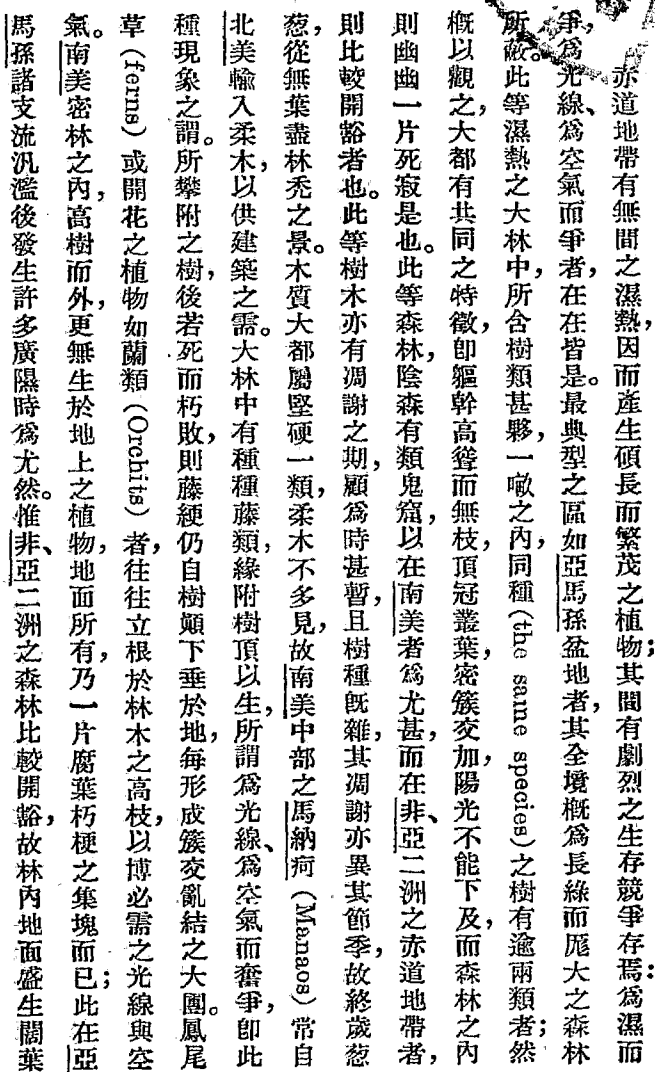 赤道地帶有無間之濕熱，因而產生碩長而繁茂之植物；其間有劇烈之生存競爭存焉：爲濕而
爭，爲光線、爲空氣而爭者，在在皆是。最典型之區如亞馬孫盆地者，其全境概爲長綠而厖大之森林
所蔽。此等濕熱之大林中，所含樹類甚夥，一噉之內，同種(the same species)之樹有逾兩類者；然
概以觀之，大都有共同之特徵，卽軀幹高聳而無枝，頂冠叢葉，密簇交加，陽光不能下及，而森林之內
則幽幽一片死寂是也。此等森林，陰森有類鬼窟，以在南美者爲尤甚，而在非、亞二洲之赤道地帶者，
則比較開豁者也。此等樹木亦有凋謝之期，顧爲時甚暫，且樹種旣雜，其凋謝亦異其節季，故終歲葱
葱，從無葉盡林禿之景。木質大都屬堅硬一類，柔木不多見，故南美中部之馬納疴(Manaos)常自
北美輸入柔木，以供建築之需。大林中有種種藤類，緣附樹頂以生，所謂爲光線、爲空氣而奮爭，卽此
種現象之謂。所攀附之樹，後若死而朽敗，則藤綆仍自樹顚下垂於地，每形成簇交亂結之大團。鳳尾
草(ferns)或開花之植物如蘭類(Orchits)者往往立根於林木之高枝，以博必需之光線與空
氣。南美密林之內，高樹而外，更無生於地上之植物，地面所有，乃一片腐葉朽梗之集塊而已；此在亞
馬孫諸支流汎濫後發生許多廣隰時爲尤然。惟非、亞二洲之森林比較開豁，故林內地面盛生闊葉